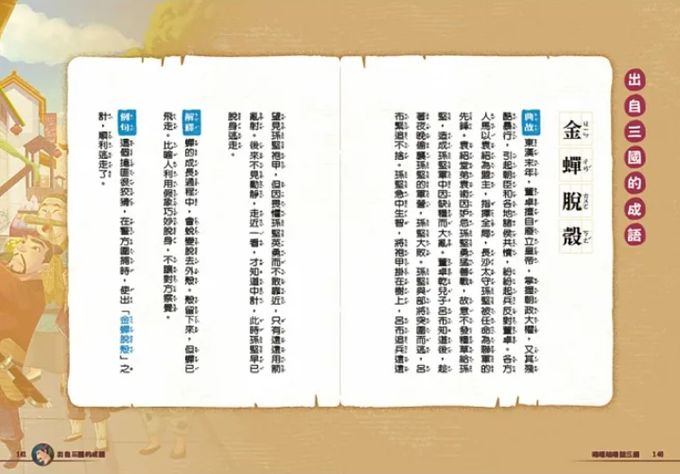 出自三國的成語
金蟬脫殼
典故
東漢末年，董卓擅自廢立皇帝，掌握朝政大權，又其殘
酷暴行，引起朝臣和各地諸侯共憤，紛紛起兵反對董卓。各方
人馬以袁紹為盟主，指揮全局，長沙太守孫堅被任命為聯軍的
先鋒。袁紹堂弟袁術因妒忌孫堅勇猛善戰，故意不發糧草給孫
堅，造成孫堅軍中因缺糧而大亂。董卓乾兒子呂布知道後，趁
著夜晚偷襲孫堅的軍營，孫堅大敗。孫堅與部將突圍而逃，呂
布緊追不捨。孫堅急中生智，將袍甲掛在樹上，呂布追兵遠遠
望見孫堅袍甲，但因畏懼孫堅英勇而不敢靠近，只有遠遠用箭
亂射。後來不見動靜，走近一看，才知道中計，此時孫堅早已
脫身逃走。
解釋
蟬的成長過程中，會蛻變脫去外殼。殼留下來，但蟬已
飛走。比喻人利用假象巧妙脫身，不讓對方察覺。
例句
這個搶匪很狡猾，在警方圍捕時，使出「金蟬脫殼」之
計，順利逃走了。
141
出自三國的成語
140